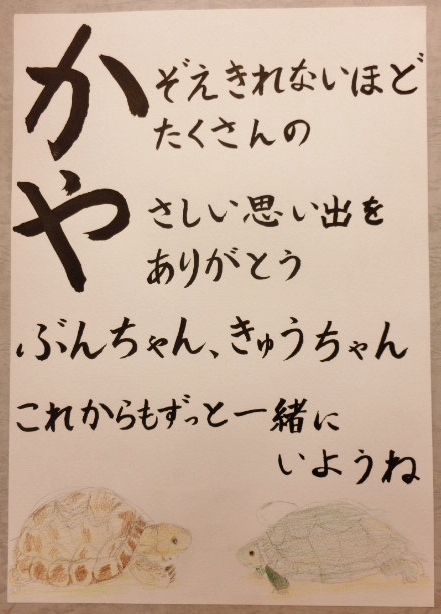 かぞえきれないほど
たくさんの
やさしい思い出を
ありがとう
ぶんちゃん、きゅうちゃん
これからもずっと一緒に
いようね